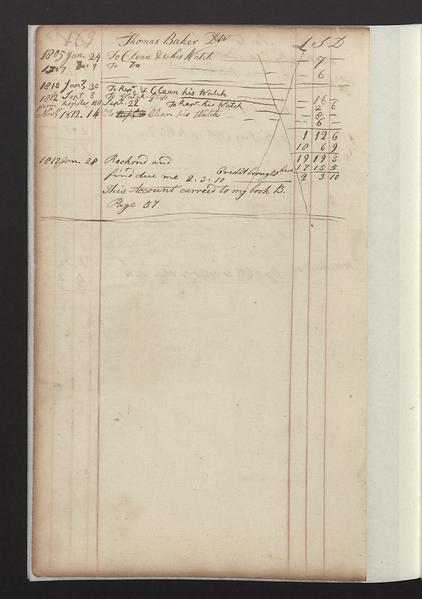 Thomas Baker Dr L S D
1805 Jan. 24 To Clean &c his Watch — 7 —
1807 9 To Do — 6 —
1810 Jany 30 To Repr & Clean his Watch — 16 —
1812 Sept. 8 To Watch Glass — 2 6
from Register Sept. 22 To Repr his Watch — 8 —
Novr 1812. 14 To Clean his Watch — 6 —
1 12 6
10 6 9
1817 Jan. 28 Reckond and 19 19 3
find due me 2:3:10 Credit brought here 17 15 5
2 3 10
This Account carried to my book B.
Page 57